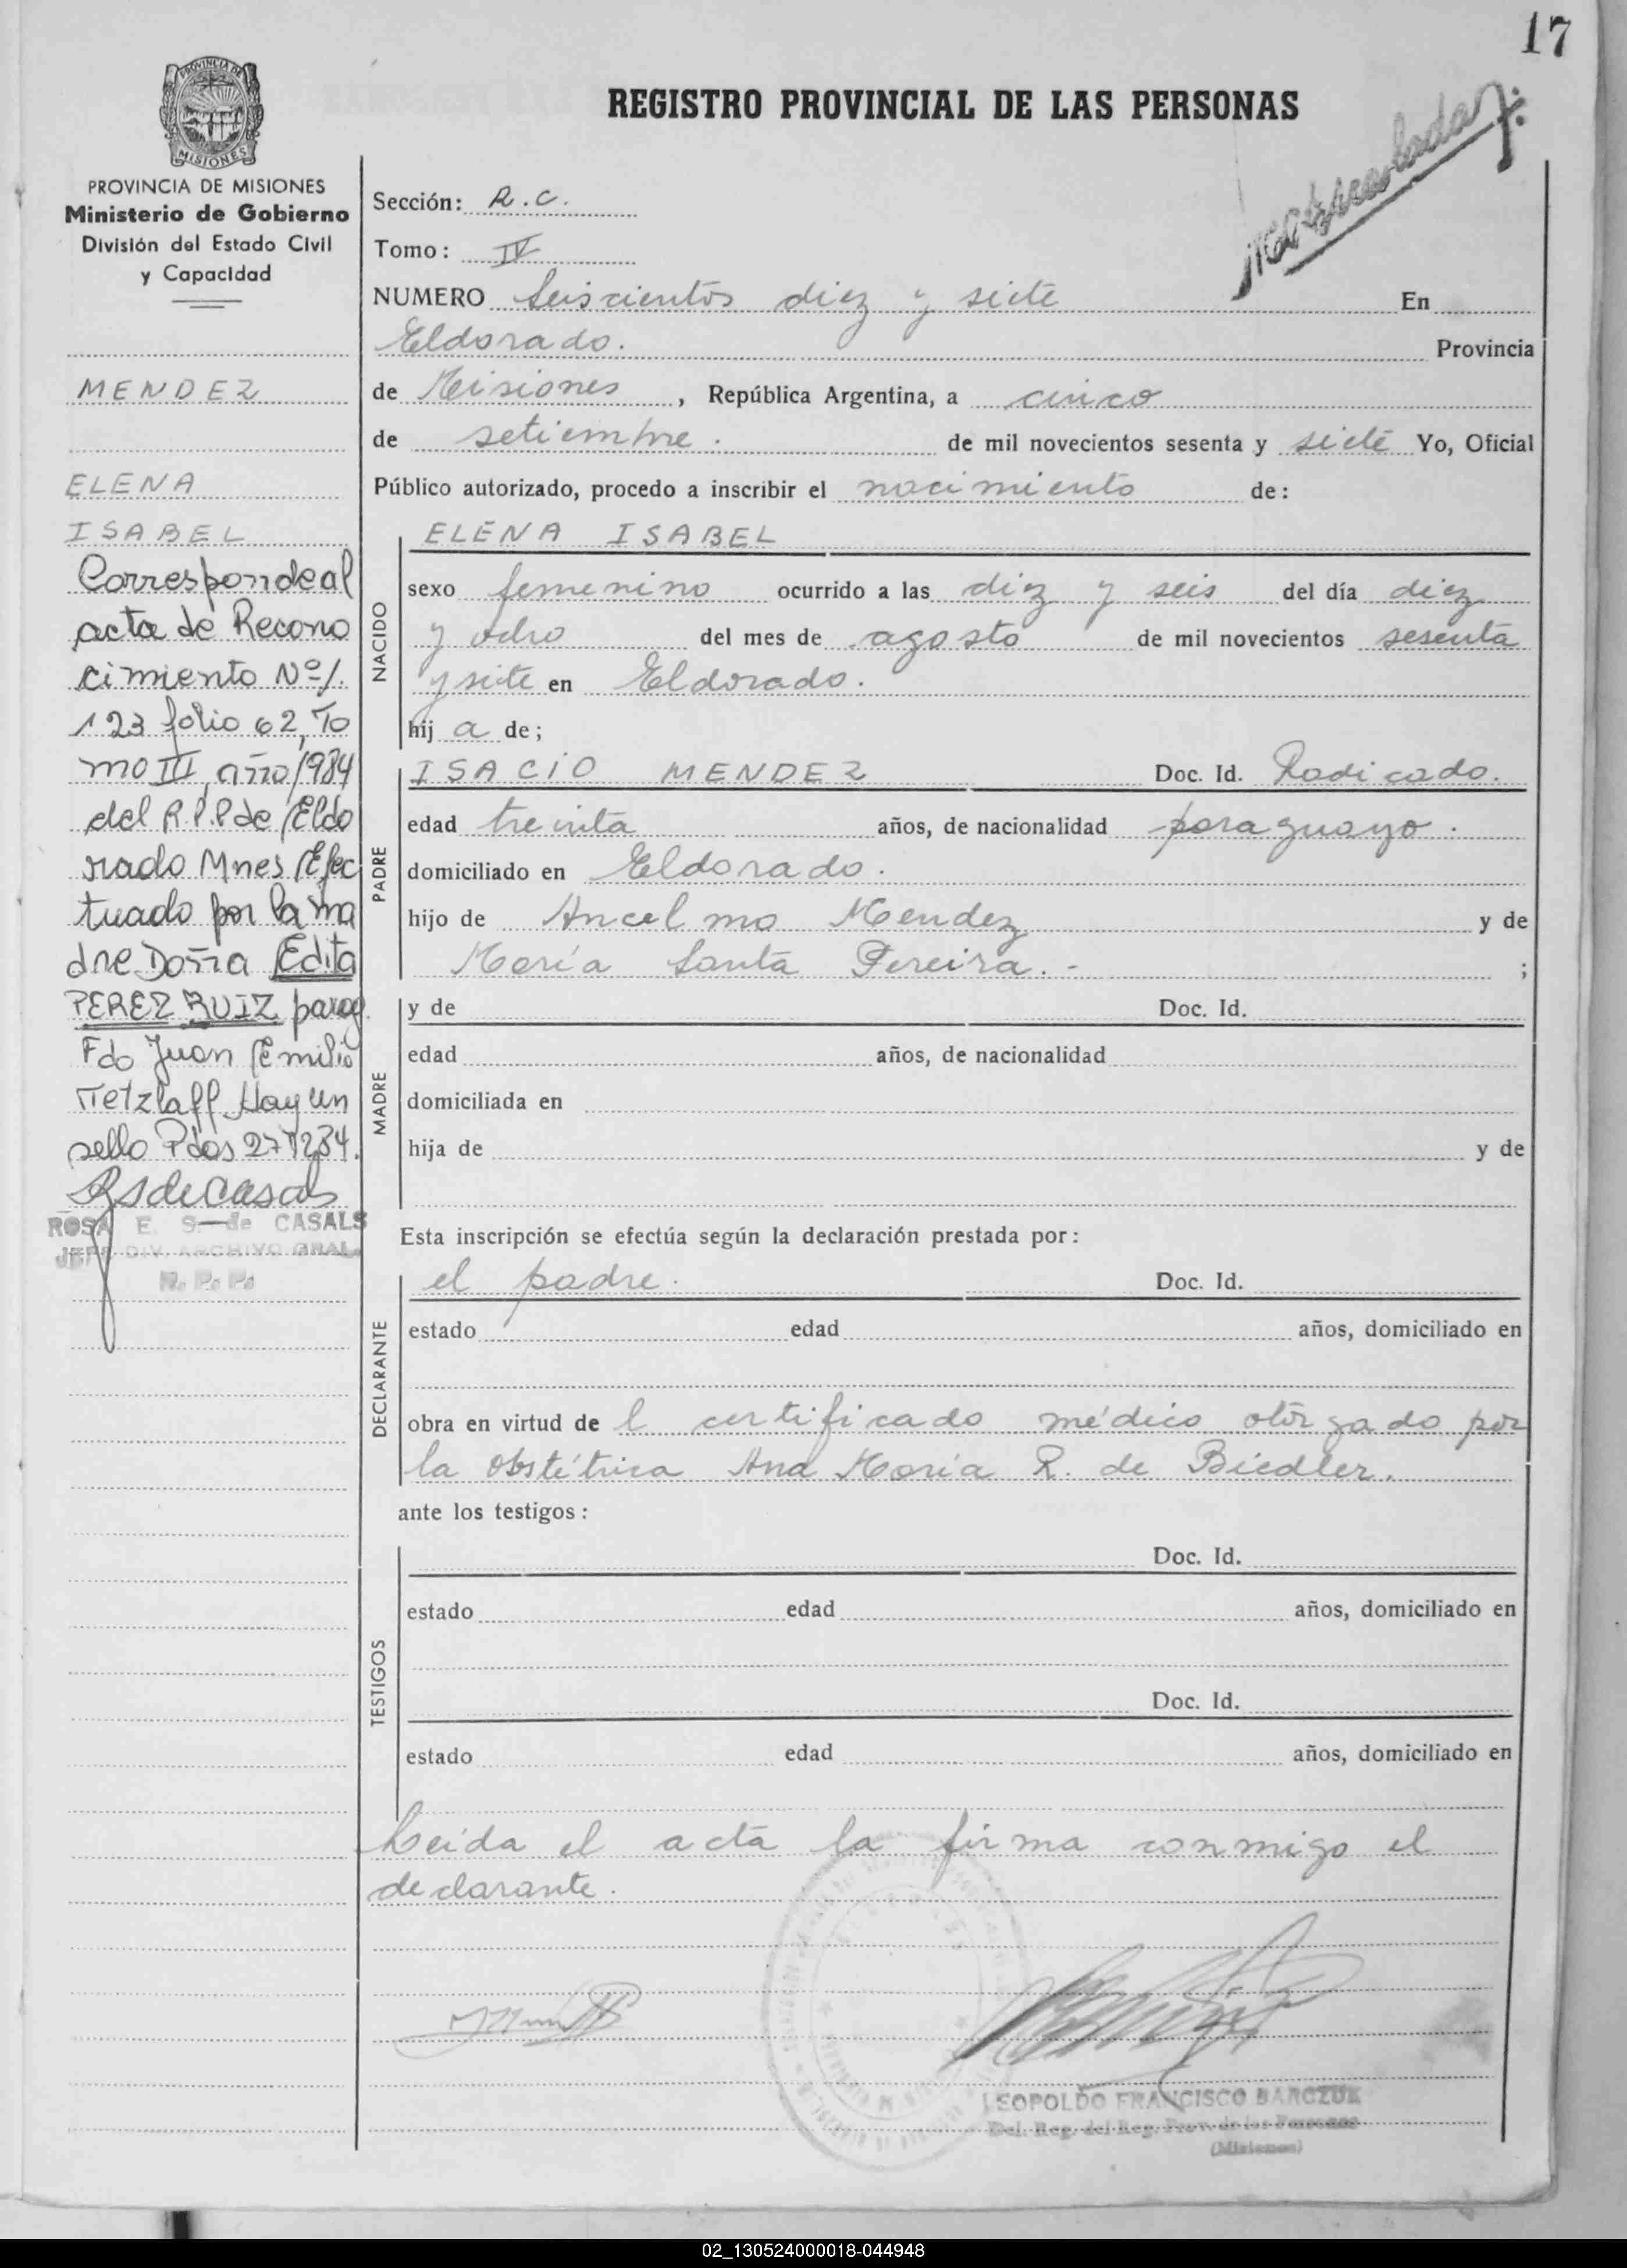 17
REGISTRO PROVINCIAL DE LAS PERSONAS
PROVINCIA DE
MISIONES
PROVINCIA DE MISIONES
Ministerio de Gobierno
División del Estado Civil
y Capacidad
MENDEZ
ELENA
ISABEL
Corresponde al
acta de Recono
cimiento Nº/.
123 folio 62, To
mo III, año/984
del R.P.P de Eldo
rado Mnes Efec
tuado por la ma
dre Doña Edita
PEREZ RUIZ parag.
Fdo Juan Emilio
Tetzlaff Hay un
sello Pdas 271284.
RSdeCasals
ROSA E. S. de CASALS
JEFE DIV. ARCHIVO GRAL.
R. P. P.
Sección: R.C.
Tomo: IV
NUMERO Seiscientos diez y siete En
Eldorado. Provincia
de Misiones, República Argentina, a cinco
de setiembre. de mil novecientos sesenta y siete Yo, Oficial
Público autorizado, procedo a inscribir el nacimiento de:
NACIDO
ELENA ISABEL
sexo femenino ocurrido a las diez y seis del día diez
y ocho del mes de agosto de mil novecientos sesenta
y siete en Eldorado.
hij a de;
PADRE
ISACIO MENDEZ Doc. Id. Radicado.
edad treinta años, de nacionalidad paraguayo.
domiciliado en Eldorado.
hijo de Ancelmo Mendez y de
María Santa Pereira. - ;
MADRE
y de Doc. Id.
edad años, de nacionalidad
domiciliada en
hija de y de
Esta inscripción se efectúa según la declaración prestada por:
DECLARANTE
el padre. Doc. Id.
estado edad años, domiciliado en
obra en virtud de l certificado médico otorgado por
la obstétrica Ana María R. de Biedler.
ante los testigos:
TESTIGOS
Doc. Id.
estado edad años, domiciliado en
Doc. Id.
estado edad años, domiciliado en
Leida el acta la firma conmigo el
declarante.
LEOPOLDO FRANCISCO BARCZUK
Del. Reg. del Reg. Prov. de las Personas
(Misiones)
02_130524000018-044948